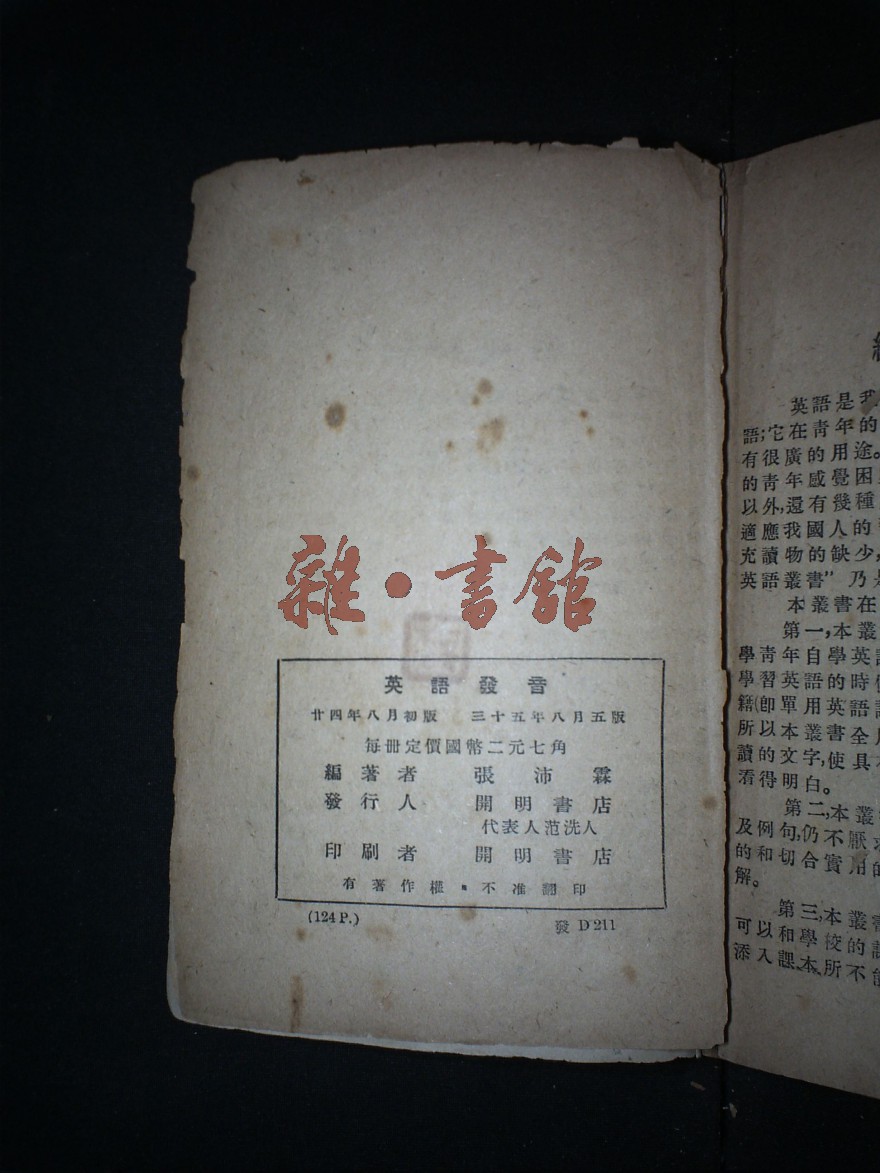 雜·書館
英語發音
廿四年八月初版 三十五年八月五版
每冊定價國幣二元七角
編著者 張沛霖
發行人 開明書店
代表人范洗人
印刷者 開明書店
有著作權·不准翻印
(124 P.) 發 D 211
英語是我
語;它在青年的
有很廣的用途。
的青年感覺困
以外,還有幾種
適應我國人的
充讀物的缺少,
英語叢書”乃是
本叢書在
第一,本叢
學青年自學英語
學習英語的時
籍(卽單用英語
所以本叢書全
讀的文字,使具
看得明白。
第二,本叢
及例句,仍不厭求
的和切合實用的
解。
第三,本叢書
可以和學校的課
添入課本所不能